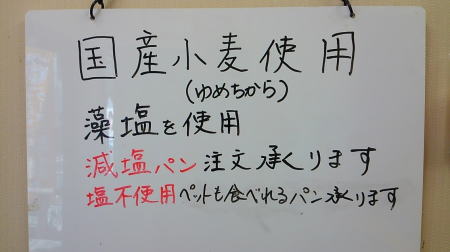 国産小麦使用
(ゆめちから)
藻塩を使用
減塩パン注文承ります
塩不使用ペットも食べれるパン承ります